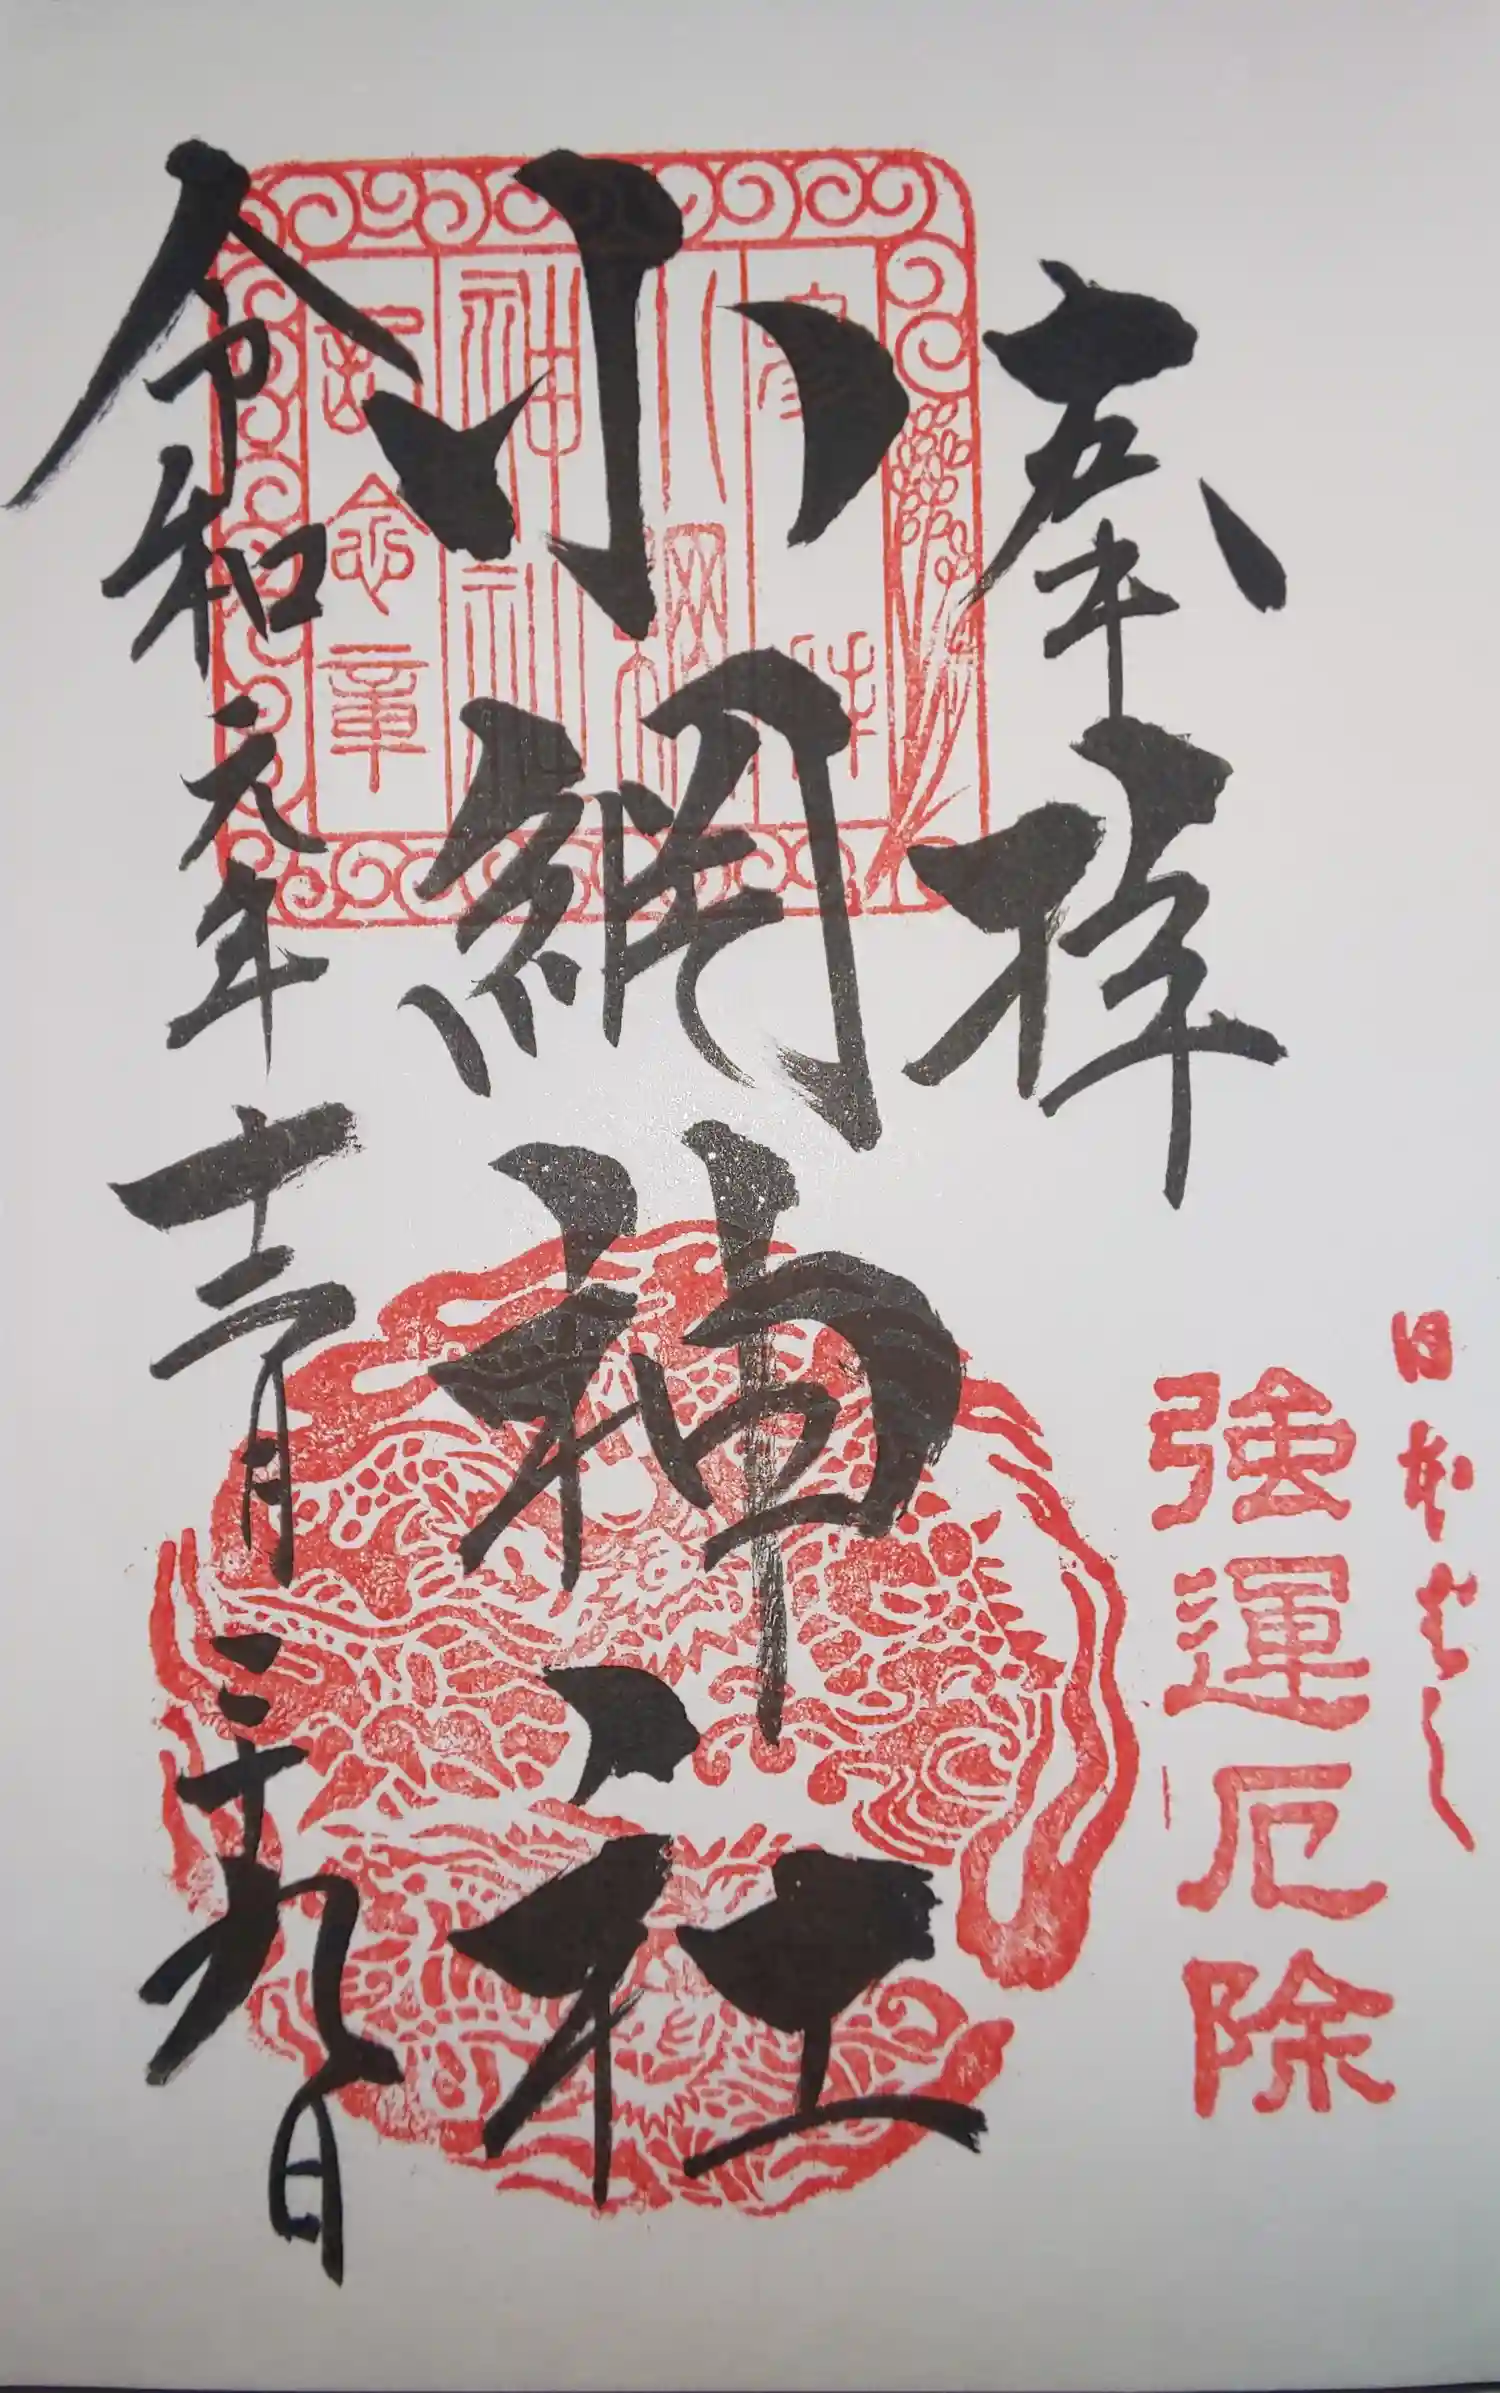 日本ばし
強運厄除
奉拝
小網神社
令和元年十二月二十九日
参拝
小網
神社
記念章